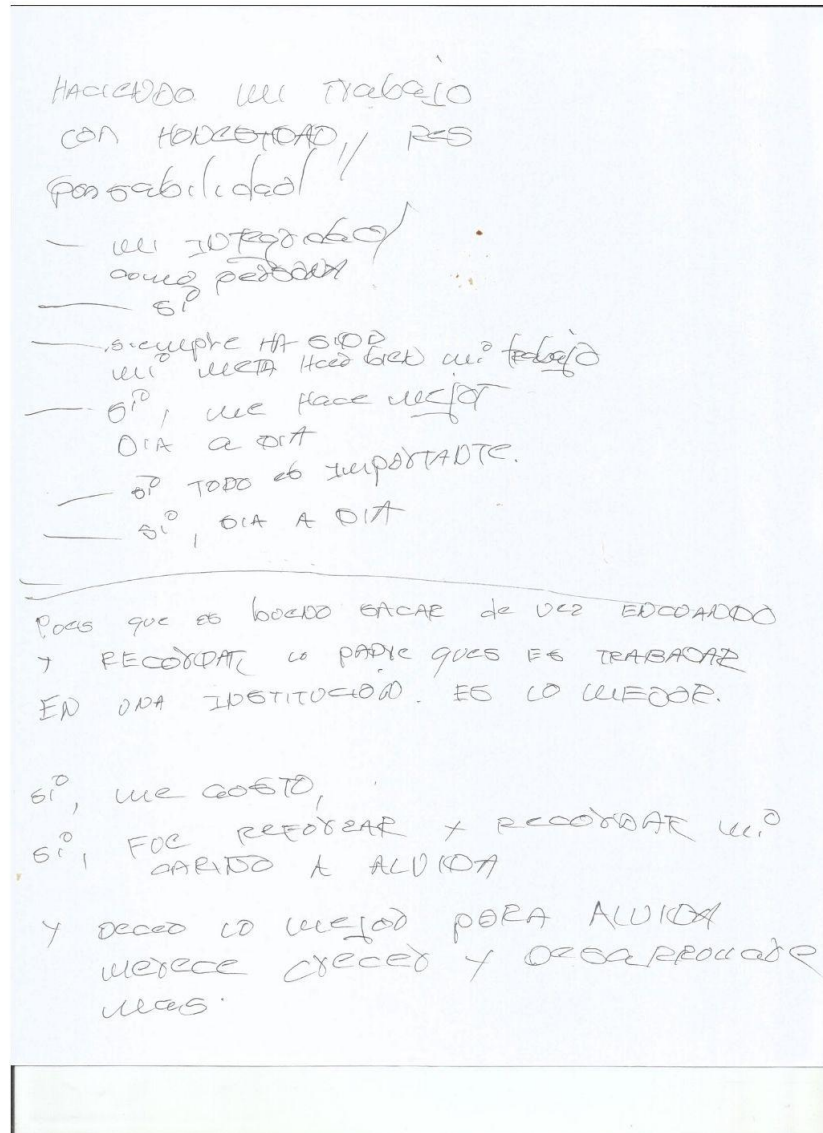 HACIENDO mi trabajo
con HONESTIDAD, RES
ponsabilidad
— mi INTEGRIDAD
como persona
— sí
— siempre HA SIDO
mi META Hacer bien mi trabajo
— sí, me Hace mejor
DIA a DIA
— sí TODO es IMPORTANTE.
— sí, DIA A DIA
Pues que es bueno SACAR de vez ENCUANDO
y RECORDAR, lo padre ques ES TRABAJAR
EN UNA INSTITUCIÓN. ES LO MEJOR.
sí, me GUSTO,
sí, FUE REFORZAR y RECORDAR mi
CARIÑO A ALUIDA
y deceo lo mejor PARA ALUIDA
merece crecer y DESARROLLARE
mas.